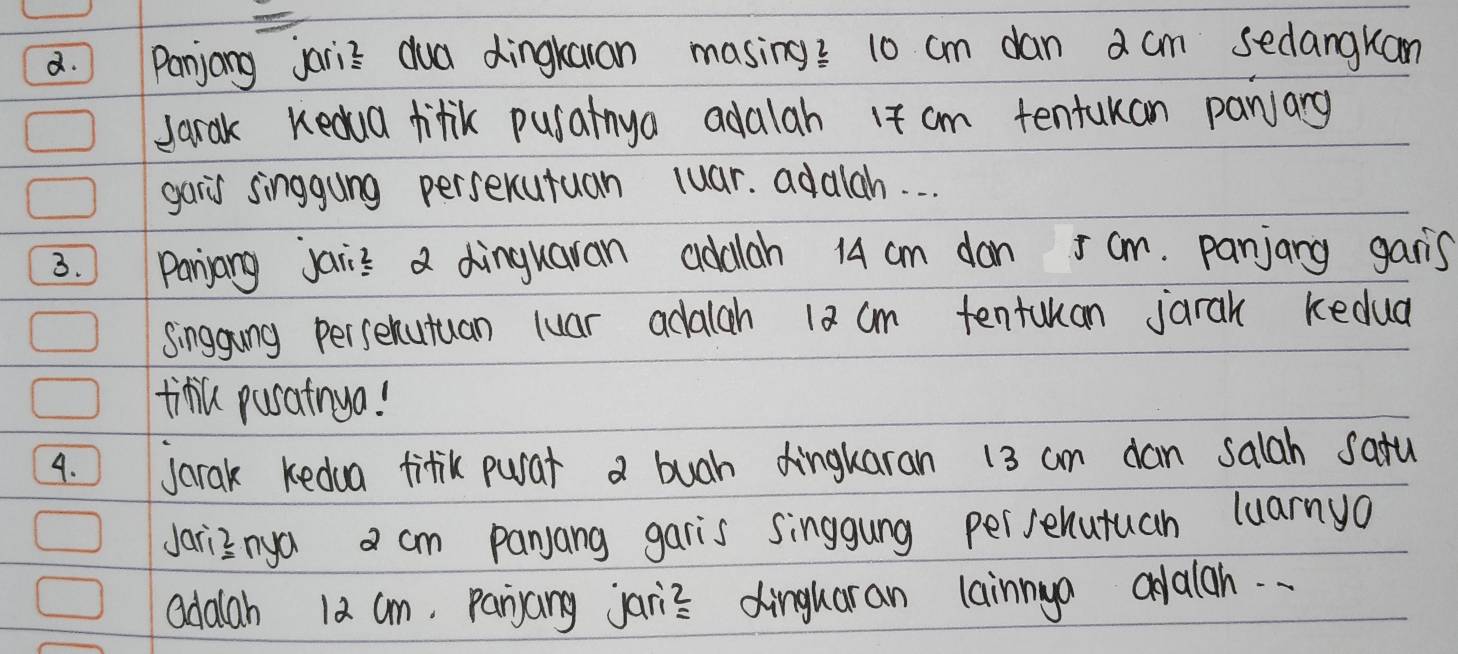 2. Panjang jari2 dua lingkaran masing2 10 cm dan 2 cm sedangkan
Jarak kedua titik pusatnya adalah 17 cm tentukan panjang
garis singgung persekutuan luar. adalah...
3. Panjang jari2 2 lingkaran adalah 14 cm dan 5 cm. panjang garis
Singgung persekutuan luar adalah 12 cm tentukan jarak kedua
titik pusatnya!
4. Jarak kedua titik pusat 2 buah lingkaran 13 cm dan salah satu
Jari2nya 2 cm panjang garis singgung persekutuan luarnya
adalah 12 cm. Panjang jari2 lingkaran lainnya adalah...